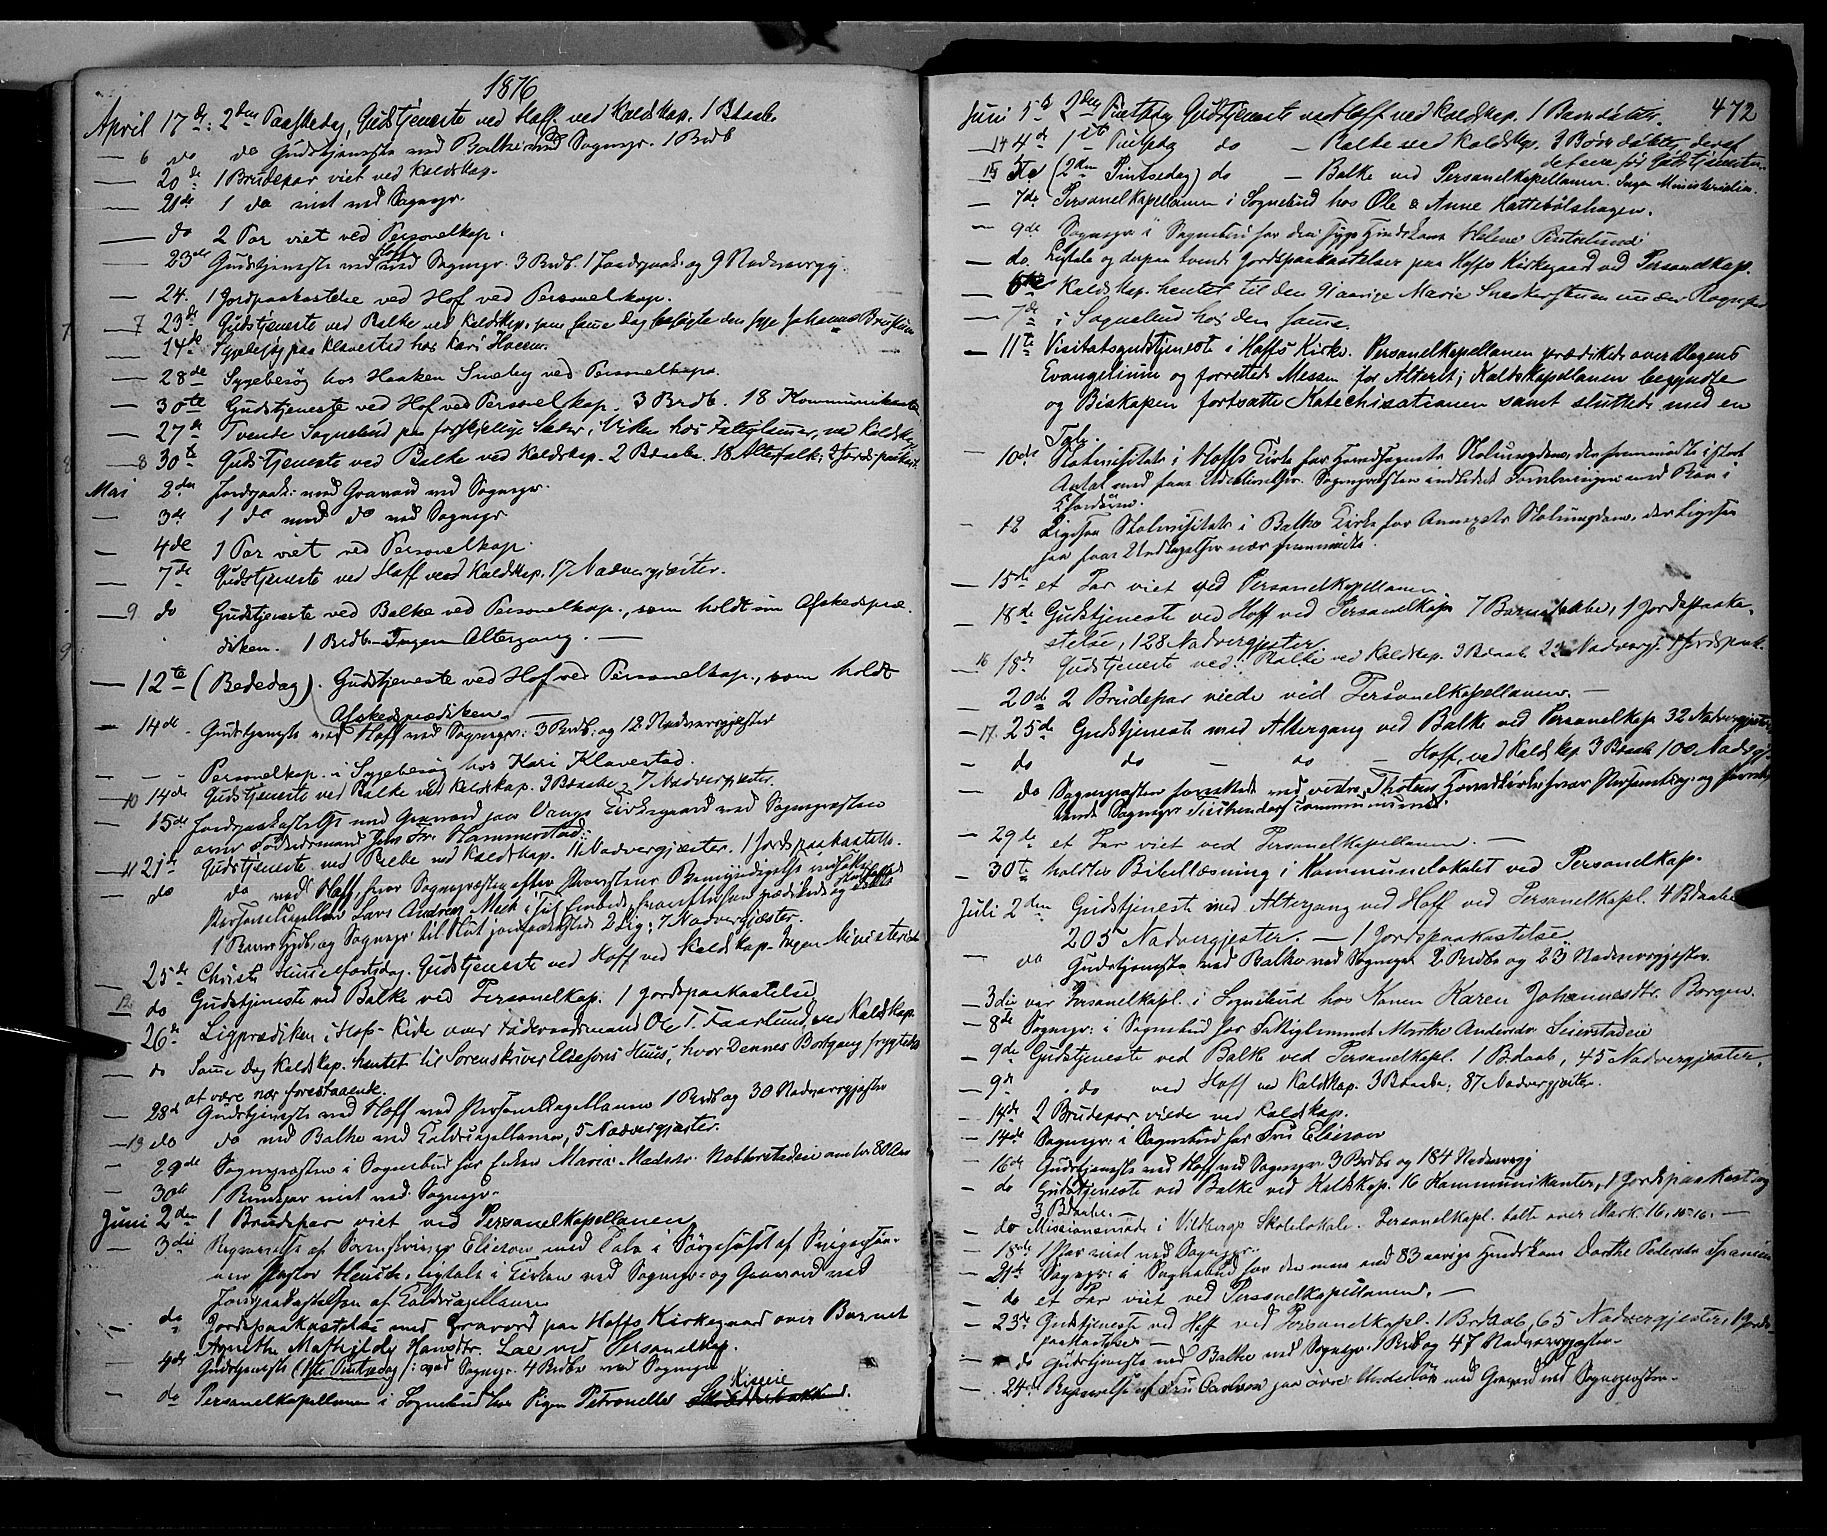 1876
April 17de: 2den Paaskedag, Gudstjeneste ved Hoff ved Kaldskap. 1 Bdaab.
— 6 do do Gudstjeneste ved Balke ved Sognepr. 1 Brdb
— 20de 1 Brudepar viet ved Kaldskap.
— 21de 1 do viet ved Sognepr.
— do 2 Par viet ved Personelkap.
— 23de Gudstjeneste ved Hoff ved Sognepr. 3 Brdb. 1 Jordpaak: og 9 Nadvergj.
— 24. 1 Jordpaakastelse ved Hof ved Personelkap.
7 — 7 23de Gudstjeneste ved Balke ved Kaldskap. som samme Dag besøgte den syge Johannes
— 24de Sygebesøg paa Klavestad hos Kari
— 28de Sygebesøg hos Haaken Sneby ved Personelkap.
— 30te Gudstjeneste ved Hof ved Personelkap. 3 Brdb. 18 Kommunikanter
— 27de Tvende Sognebud paa forskjellige Steder i hos Fattiglemmer, ved Kaldskap
8 — 8 30te Gudstjeneste ved Balke ved Kaldskap. 2 Bdaabe. 18 Alterfolk; 2 Jordspaakast
Mai 2den Jordpaak: med Gravord ved Sognepr.
— 3de 1 do med do ved Sognepr
— 4de 1 Par viet ved Personelkap.
— 7de Gudstjeneste ved Hoff ved Kaldskap. 17 Nadvergjæster.
— 9 do Gudstjeneste ved Balke ved Personelkap., som holdt sin Afskedspræ-
9 diken. 1 Brdb. Ingen Altergang. —
— 12te (Bededag). Gudstjeneste ved Hof ved Personelkap., som holdt
Afskedsprædiken.
— 14de Gudstjeneste ved Hoff ved Sognepr: 3 Brdb: og 12 Nadvergjester
— — Personelkap. i Sygebesøg hos Kari Klavestad.
— 10 14de Gudstjeneste ved Balke ved Kaldskap. 3 Bdaabe, 7 Nadvergjæster.
— 15de Jordpaakastelse med Gravord paa Vangs Kirkegaard ved Sognepræsten
over Jens Fr. Hammerstad.
— 11 21de Gudstjeneste ved Balke ved Kaldskap. 11 Nadvergjæster. 1 Jordspaakastelse.
do do ved Hoff, hvor Sognepræsten efter Provstens Bemyndigelse indsatte
Personelkapellan Lars Andreas Meek i sit Embede, hvorefter han prædikede og
1 Barn og Sognepr: til Slut jordfæstede 2 Lig; 7 Nadvergjæster.
— 25de Christi Himmelfartsdag. Gudstjeneste ved Hoff ved Kaldskap. Ingen
12. do Gudstjeneste ved Balke ved Personelkap. 1 Jordspaakastelse
— 26de Ligprædiken i Hofs Kirke over Ole T. Faarlund ved Kaldskap.
— do Samme Dag Kaldskap. hentet til Sorenskriver Eliesons Huus, hvor Dennes Bortgang frygtedes
at være nær forestaaende.
— 28de Gudstjeneste ved Hoff ved Personelkapellanen 1 Brdb og 30 Nadvergjester
— 13 do do ved Balke ved Kaldskapellanen, 5 Nadvergjester.
— 29de Sognepræsten i Sognebud for Enken Maria Madsdr. 80 Aar
— 30de 1 Brudepar viet ved Sognepr.
Juni 2den 1 Brudepar viet ved Personelkapellanen
— 3die Begravelse af Sorenskriver Elieson med Tale i Sørgehuset af
Pastor Heuch, Ligtale i Kirken ved Sognepr: og Gravord ved
Jordpaakastelsen af Kaldskapellanen
— do Jordspaakastelse med Gravord paa Hoffs Kirkegaard over Barnet
Agnethe Mathilde Hansdtr. Lae ved Personelkap.
— 4de Gudstjeneste (1ste Pintsedag): ved Sognepr. 4 Brdbe ved Sognepr
— do Personelkapellanen i Sognebud hos Pigen Petronelle
472
Juni 5te 2den Pintsdag Gudstjeneste ved Hoff ved Kaldskap. 1 Barn døbt.
— 14 4de 1ste Pintsdag do — Balke ved Kaldskap. 3 Børn døbte, deraf
det ene før Gudstjenesten.
15 5te (2den Pintsedag) do — Balke ved Personelkapellanen. Ingen Ministerialia.
— 7de Personelkapellanen i Sognebud hos Ole & Anne Hattebølshagen.
— 9de Sognepr: i Sognebud for den syge Huuskone Helene
— do. Ligtale og derpaa tvende Jordspaakastelser paa Hoffs Kirkegaard ved Personelkap.
— 6te Kaldskap. hentet til den 91 aarige Marie
— 7de i Sognebud hos den samme.
— 11te Visitatsgudstjeneste i Hoffs Kirke. Personelkapellanen prædikede over Dagens
Evangelium og forrettede Messen for Alteret; Kaldskapellanen begyndte
og Biskopen fortsatte Katechisationen samt sluttede med en
Tale.
— 10de Skolevisitats i Hoffs Kirke for Hovedsognets Skoleungdom, der fremmødte i stort
Antal med faae Undtagelser. Sognepræsten indledede Forretningen med Bøn i
Chordøren.
— 12 Ligesaa Skolevisitats i Balke Kirke for Annexets Skoleungdom, der ligesaa
paa faae Undtagelser nær fremmødte.
— 15de et Par viet ved Personelkapellanen
— 18de Gudstjeneste ved Hoff ved Personelkap 7 Barnedaabe, 1 Jordspaaka-
stelse, 128 Nadvergjester
— 16 18de Gudstjeneste ved Balke ved Kaldskap. 3 Bdaabe 22 Nadvergj. 1 Jordspaak.
20de 2 Brudepar viede ved Personelkapellanen. —
— 17. 25de Gudstjeneste med Altergang ved Balke ved Personelkap 32 Nadvergjester
— do do — do — Hoff, ved Kaldskap 3 Bdaabe 100 Nadvgj.
— do Sognepræsten ved vestre Thotens Hovedkirke, hvor
— 29de et Par viet ved Personelkapellanen. —
— 30te holdtes Bibellæsning i Kommunelokalet ved Personelkap.
Juli 2den Gudstjeneste med Altergang ved Hoff ved Personelkapl. 4 Bdaabe
205 Nadvergjester. — 1 Jordspaakastelse
— do Gudstjeneste ved Balke ved Sognepr 2 Brdbe og 23 Nadvergjester.
— 3die var Personelkapl. i Sognebud hos Konen Karen Johannesdtr. Borgen.
— 8de Sognepr: i Sognebud for Fattiglemmet Marthe Andersdr
— 9de Gudstjeneste ved Balke ved Personelkapl. 1 Bdaab, 45 Nadvergjester.
— 9de do ved Hoff ved Kaldskap. 3 Bdaabe; 87 Nadvergjæster.
— 14de 2 Brudepar viede ved Kaldskap.
— 14de Sognepr: i Sognebud for Fru Elieson
— 16de Gudstjeneste ved Hoff ved Sognepr 3 Brdbe og 184 Nadvergj
— do Gudstjeneste ved Balke ved Kaldskap. 16 Kommunikanter, 1 Jordspaakastelse
3 Bdaabe. —
— do Missionsmøde i Vildbergs Skolelokale. Personelkapl. talte over Mark. 16, —
— 18de 1 Par viet ved Sognepr.
— 21de Sognepr: i Sognebud for den mere end 83 aarige Huuskone Dorthe Pedersdr
— do et Par viet ved Personelkapellanen. —
— 23de Gudstjeneste ved Hoff ved Personelkapl. 1 Brdaab, 65 Nadvergjester, 1 Jords-
paakastelse —
— do Gudstjeneste ved Balke ved Sognepr. 1 Brdb og 47 Nadvergjester.
— 24de Begravelse af Fru paa øvre med Gravord ved Sognepræsten.